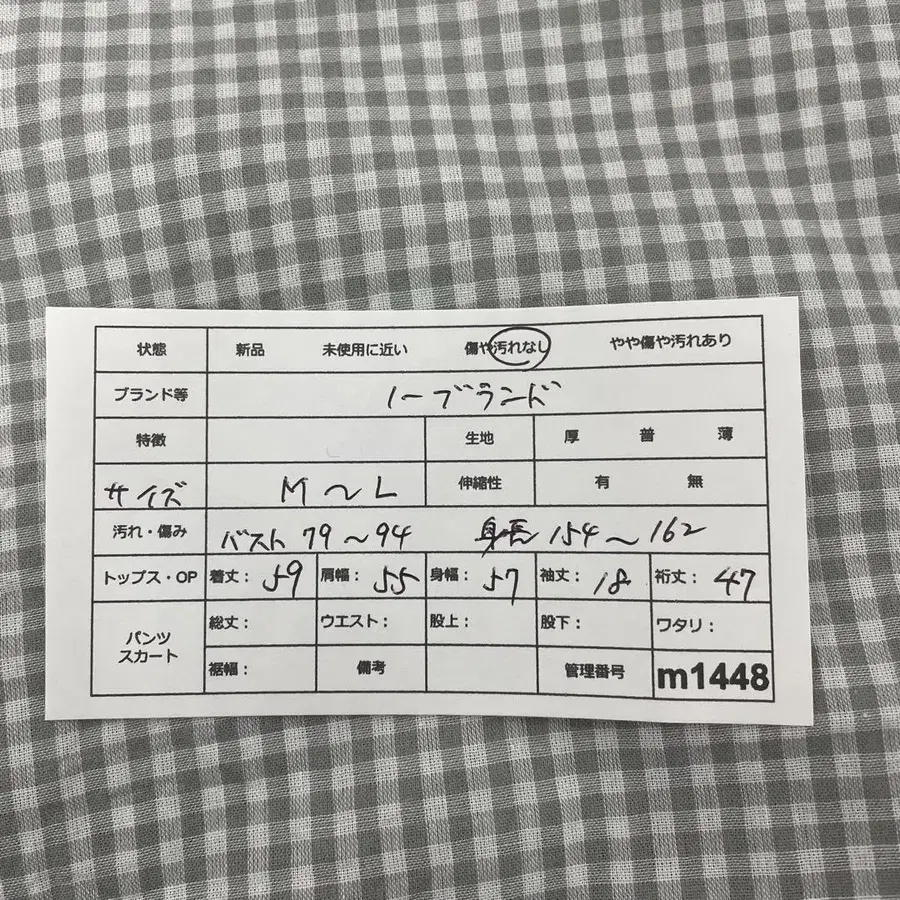 状態 新品 未使用に近い 傷や汚れなし やや傷や汚れあり
ブランド等 ノーブランド
特徴 生地 厚 普 薄
サイズ M〜L 伸縮性 有 無
汚れ・傷み バスト 79〜94 身長 154〜162
トップス・OP 着丈: 59 肩幅: 55 身幅: 57 袖丈: 18 裄丈: 47
パンツ スカート
総丈: ウエスト: 股上: 股下: ワタリ:
裾幅: 備考 管理番号 m1448